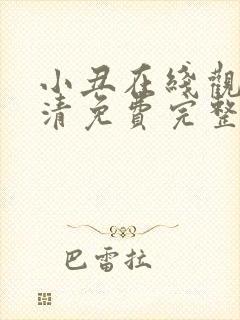 小丑在綫觀
清免費完整
巴雷拉